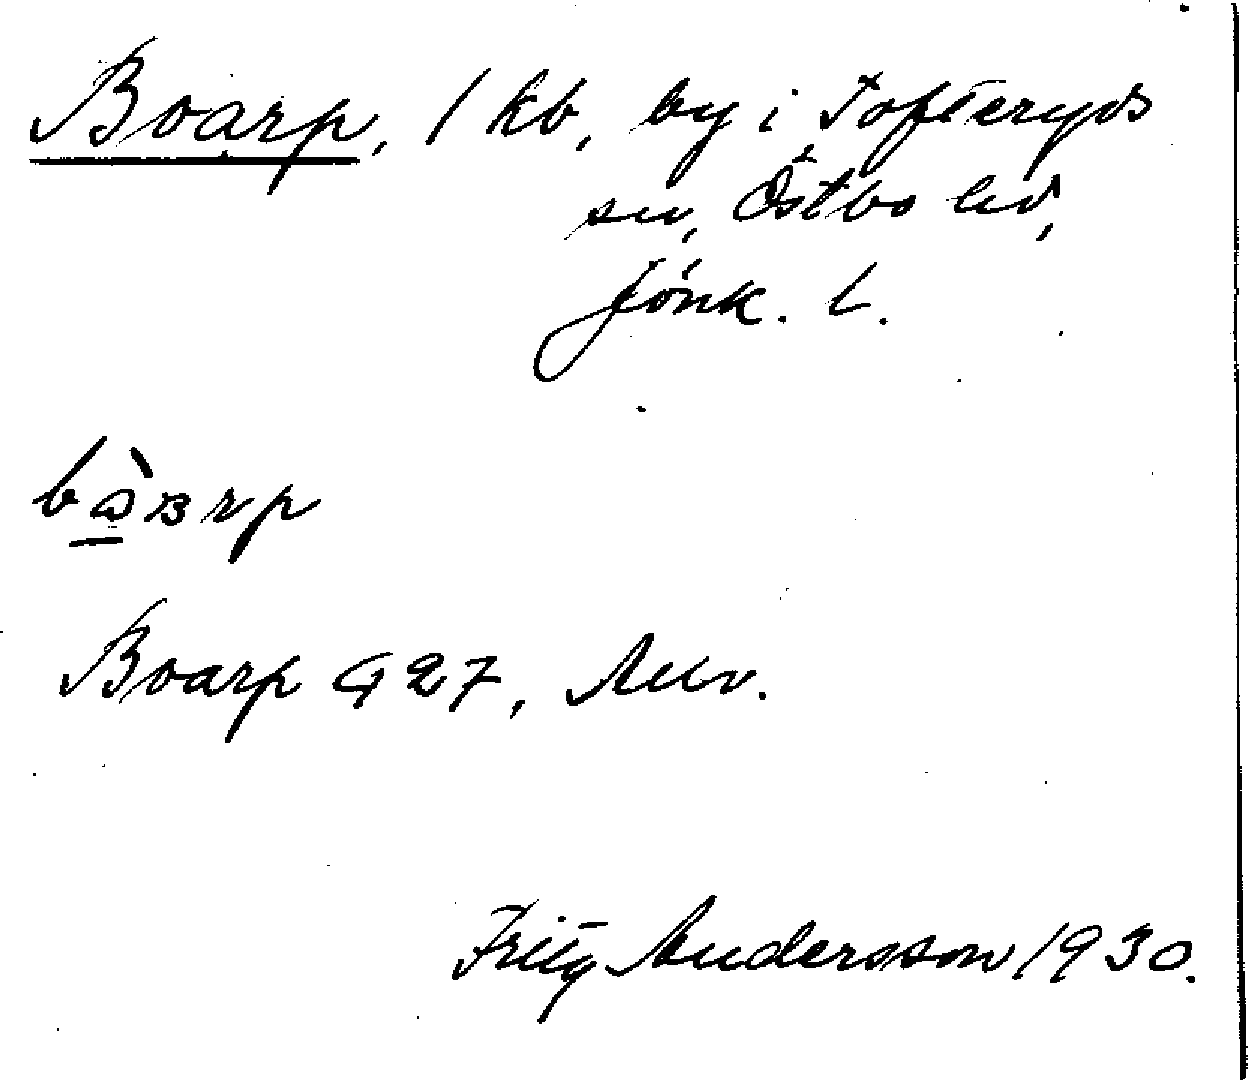 Boarp, 1 kb, by i Tofteryds
sn, Östbo hd,
Jönk. l.
Boarp G 27, Mv.
Fritz Andersson 1930.